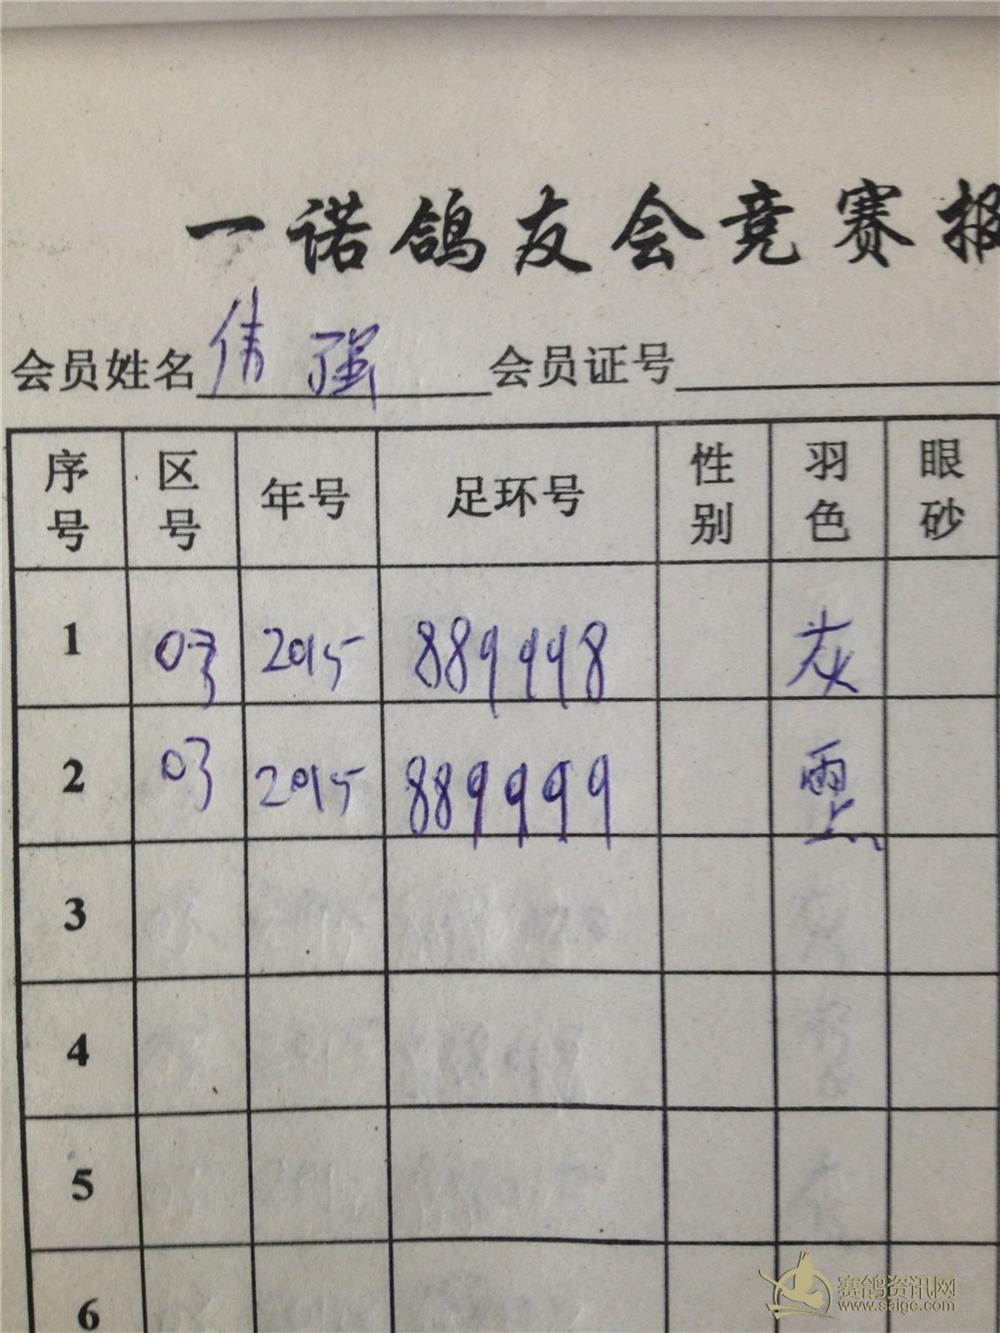 一诺鸽友会竞赛报
会员姓名 伟强 会员证号
序号 区号 年号 足环号 性别 羽色 眼砂
1 03 2015 889998 灰
2 03 2015 889999 黑
3
4
5
6
赛鸽资讯网
www.saigc.com